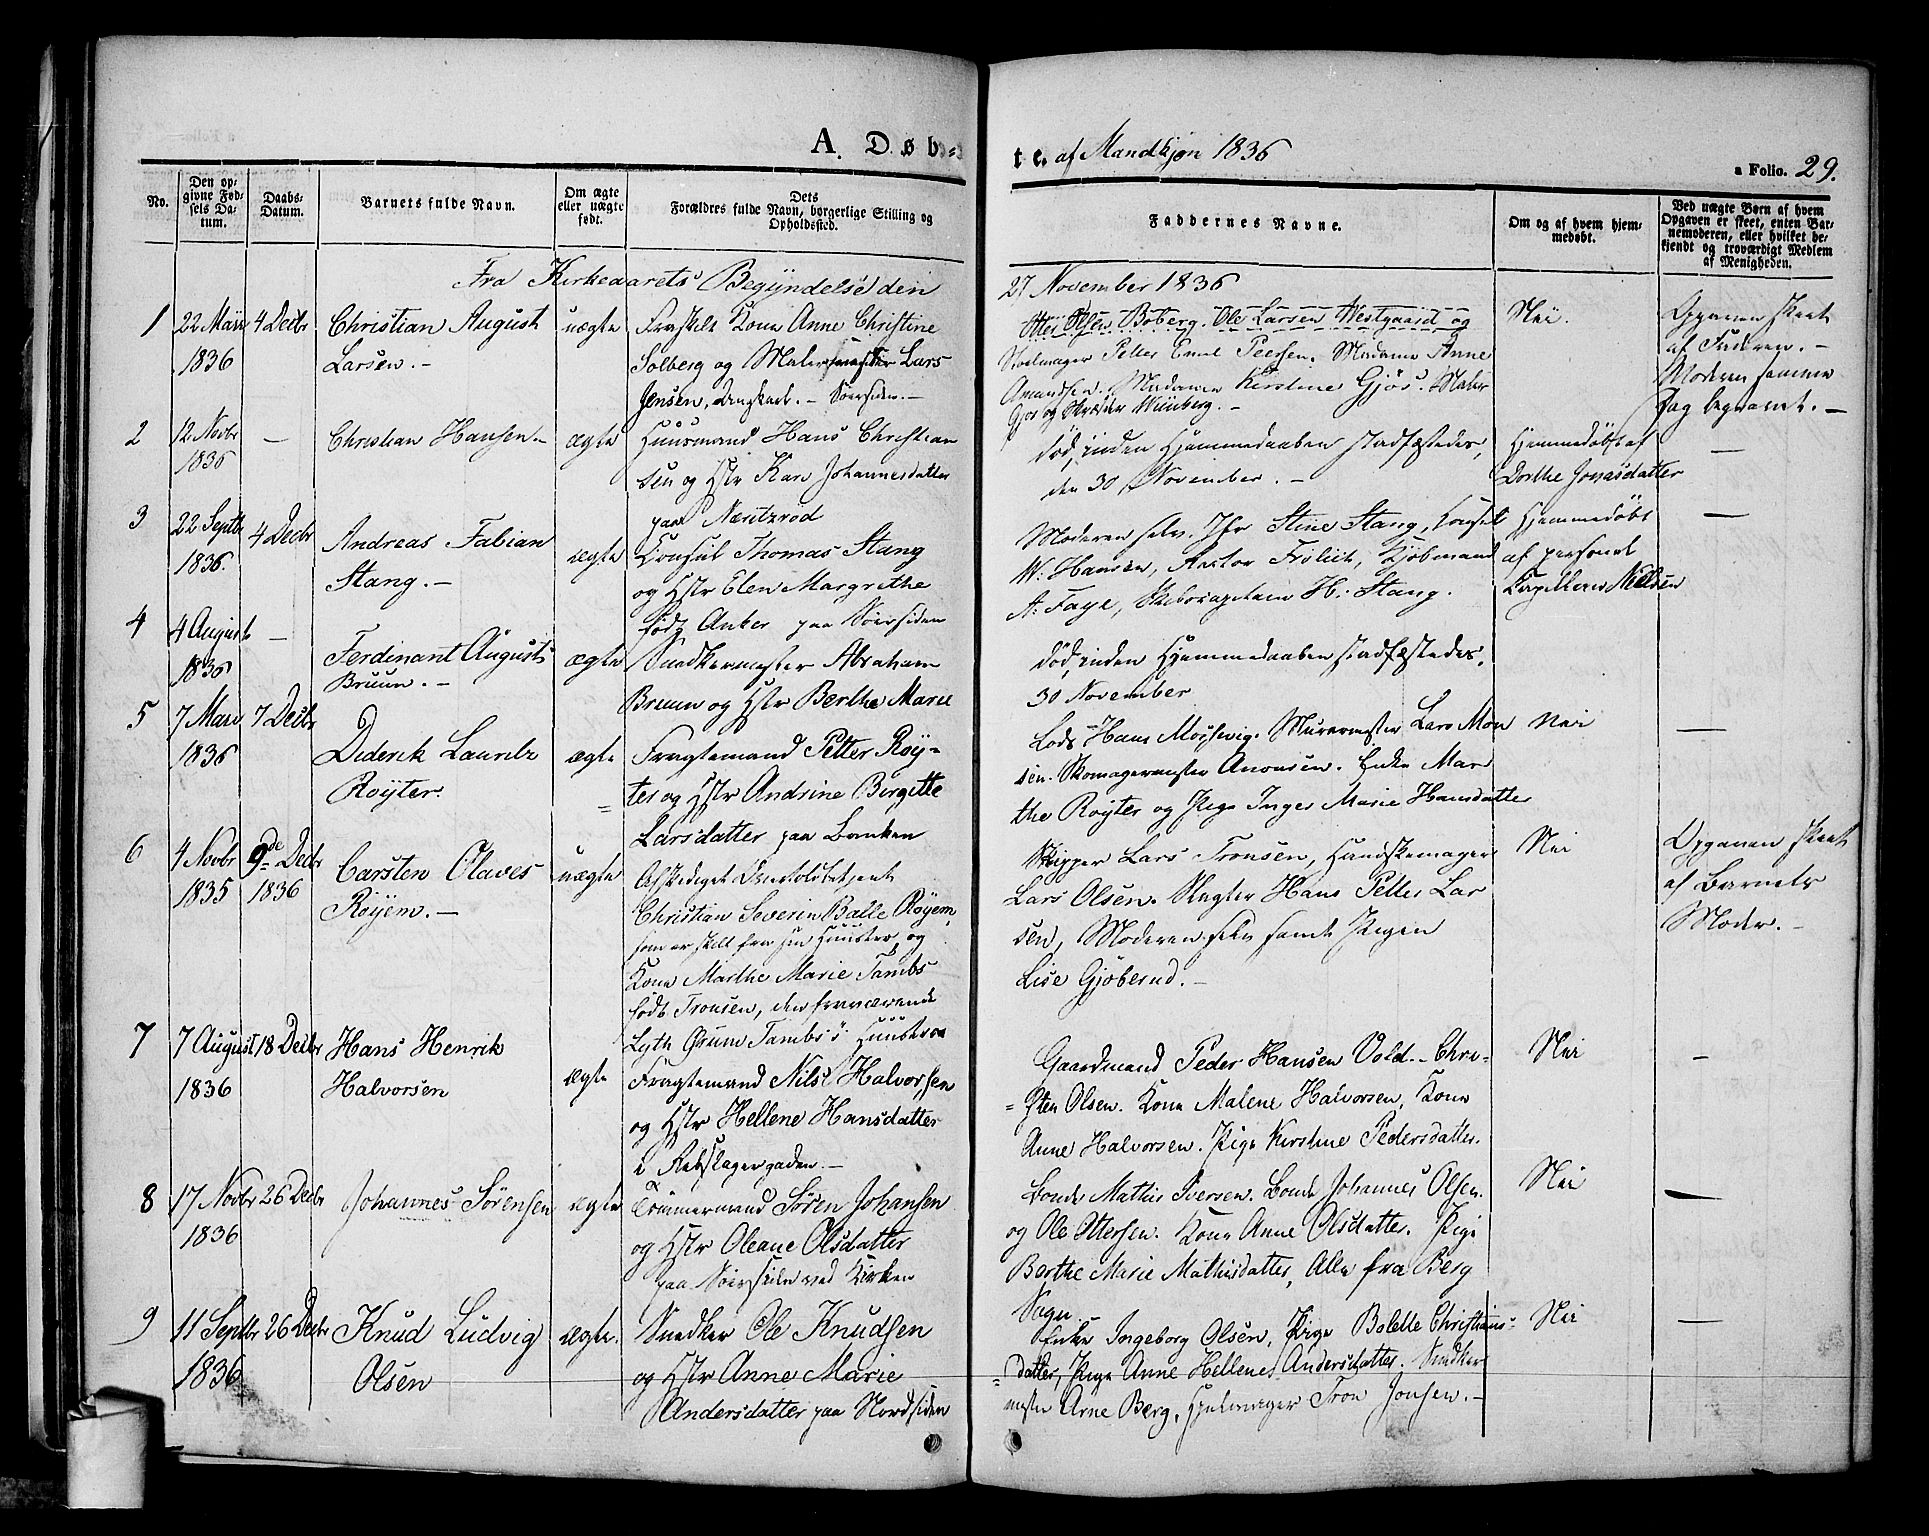 A. Døb=
te. af Mandkjøn 1836
a Folio. 29.
No.
Den op-
givne Fød-
sels Da-
tum.
Daabs-
Datum.
Barnets fulde Navn.
Om ægte
eller uægte
født.
Dets
Forældres fulde Navn, borgerlige Stilling og
Opholdssted.
Faddernes Navne.
Om og af hvem hjem-
medøbt.
Ved uægte Børn af hvem
Opgaven er skeet, enten Bar-
nemoderen, eller hvilket be-
kjendt og troværdigt Medlem
af Menigheden.
Fra Kirkeaarets Begyndelse den
27 November 1836
1
22 Marts
1836
4 Decbr
Christian August
Larsen. -
uægte
Fraskilt Kone Anne Christine
Solberg og Malermester Lars
Jensen, Ungkarl. - Søersiden. -
Otter Olsen Boberg. Ole Larsen Westgaard og
Petter Emil Peersen. Madame Anne
Amundsen. Madame Kirstine Gjøs. Maler
Gjøs og
Nei.
Opgaven skeet
af Faderen. -
Moderen samme
Dag begravet. -
2
12 Novbr
1836
-
Christian Hansen -
ægte
Huusmand Hans Christian
sen og Hstr Kari Johannesdatter
paa Næritzrød
død, inden Hjemmedaaben stadfæstedes,
den 30 November. -
Hjemmedøbt af
Dorthe Jonasdatter
-
3
22 Septbr
1836.
4 Decbr
Andreas Fabian
Stang. -
ægte
Konsul Thomas Stang
og Hstr Elen Margrethe
født Anker paa Søersiden
Moderen selv. Jfr Stine Stang, Konsul
W. Hansen, Rector Frølich, Kjøbmand
A. Faye, Skibscapitain H. Stang.
Hjemmedøbt
af personel
Kapellan Nielsen
-
4
4 August
1836
-
Ferdinant August
Bruun. -
ægte
Snedkermester Abraham
Bruun og Hstr Berthe Marie
død, inden Hjemmedaaben stadfæstedes,
30 November
5
7 Mars
1836
7 Decbr
Diderik Lauritz
Røyter.
ægte
=
Fragtemand Petter Røy=
ter og Hstr Andrine Birgitte
Larsdatter paa Banken
Lods Hans Mossevig. Murermester Lars Mon
sen. Skomagermester Anonsen. Enke Mar
the Røyter og Pige Inger Marie Hansdatter
Nei
-
6
4 Novbr
1835
9de Decbr
1836
Carsten Olaves
Røyem. -
uægte
Afskediget Overtoldbetjent
Christian Severin Balle Røyem,
som er skilt fra sin Hustro, og
Kone Marthe Marie Tambs
født Tronsen, den fraværende
Lyth Ørum Tambs's Huustro
Skipper Lars Tronsen, Handskemager
Lars Olsen. Slagter Hans Petter Lar
sen, Moderen selv samt Pigen
Lise Gjøberud. -
Nei
Opgaven skeet
af Barnets
Moder. -
7
7 August
1836
18 Decbr
Hans Henrik
Halvorsen
ægte
Fragtemand Nils Halvorsen
og Hstr Hellene Hansdatter
i Rebslagergaden. -
Gaardmand Peder Hansen Vold. - Chri=
=sten Olsen. Kone Malene Halvorsen, Kone
Anne Halvorsen. Pige Kirstine Pedersdatter.
Nei
-
8
17 Novbr
1836
26 Decbr
Johannes Sørensen
ægte
Tømmermand Søren Johansen
og Hstr Oleane Olsdatter
paa Søersiden ved Kirken
Bonde Mathis Iversen. Bonde Johannes Olsen.
og Ole Ittersen. Kone Anne Olsdatter. Pige
Berthe Marie Mathisdatter, Alle fra Berg
Sogn -
Nei
-
9
11 Septbr
1836
26 Decbr
Knud Ludvig
Olsen
ægte.
Snedker Ole Knudsen
og Hstr Anne Marie
Andersdatter paa Nordsiden
Enke Ingeborg Olsen, Pige Bolette Christians=
=datter, Pige Anne Hellenes Andersdatter. Snedker
mester Arne Berg, Hjulmager Tron Jonsen. -
Nei
-